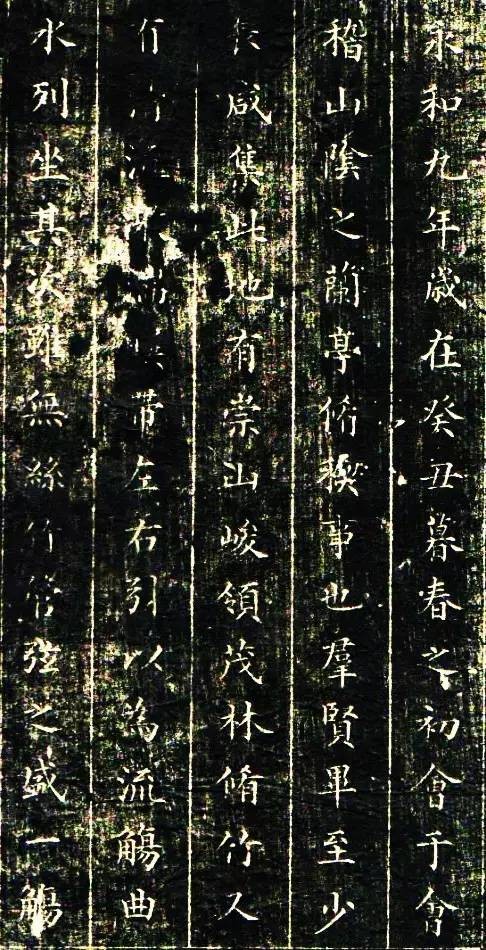 永和九年歲在癸丑暮春之初會于會
稽山陰之蘭亭脩稧事也羣賢畢至少
長咸集此地有崇山峻領茂林脩竹又
有清流湍暎帶左右引以為流觴曲
水列坐其次雖無絲竹管弦之盛一觴